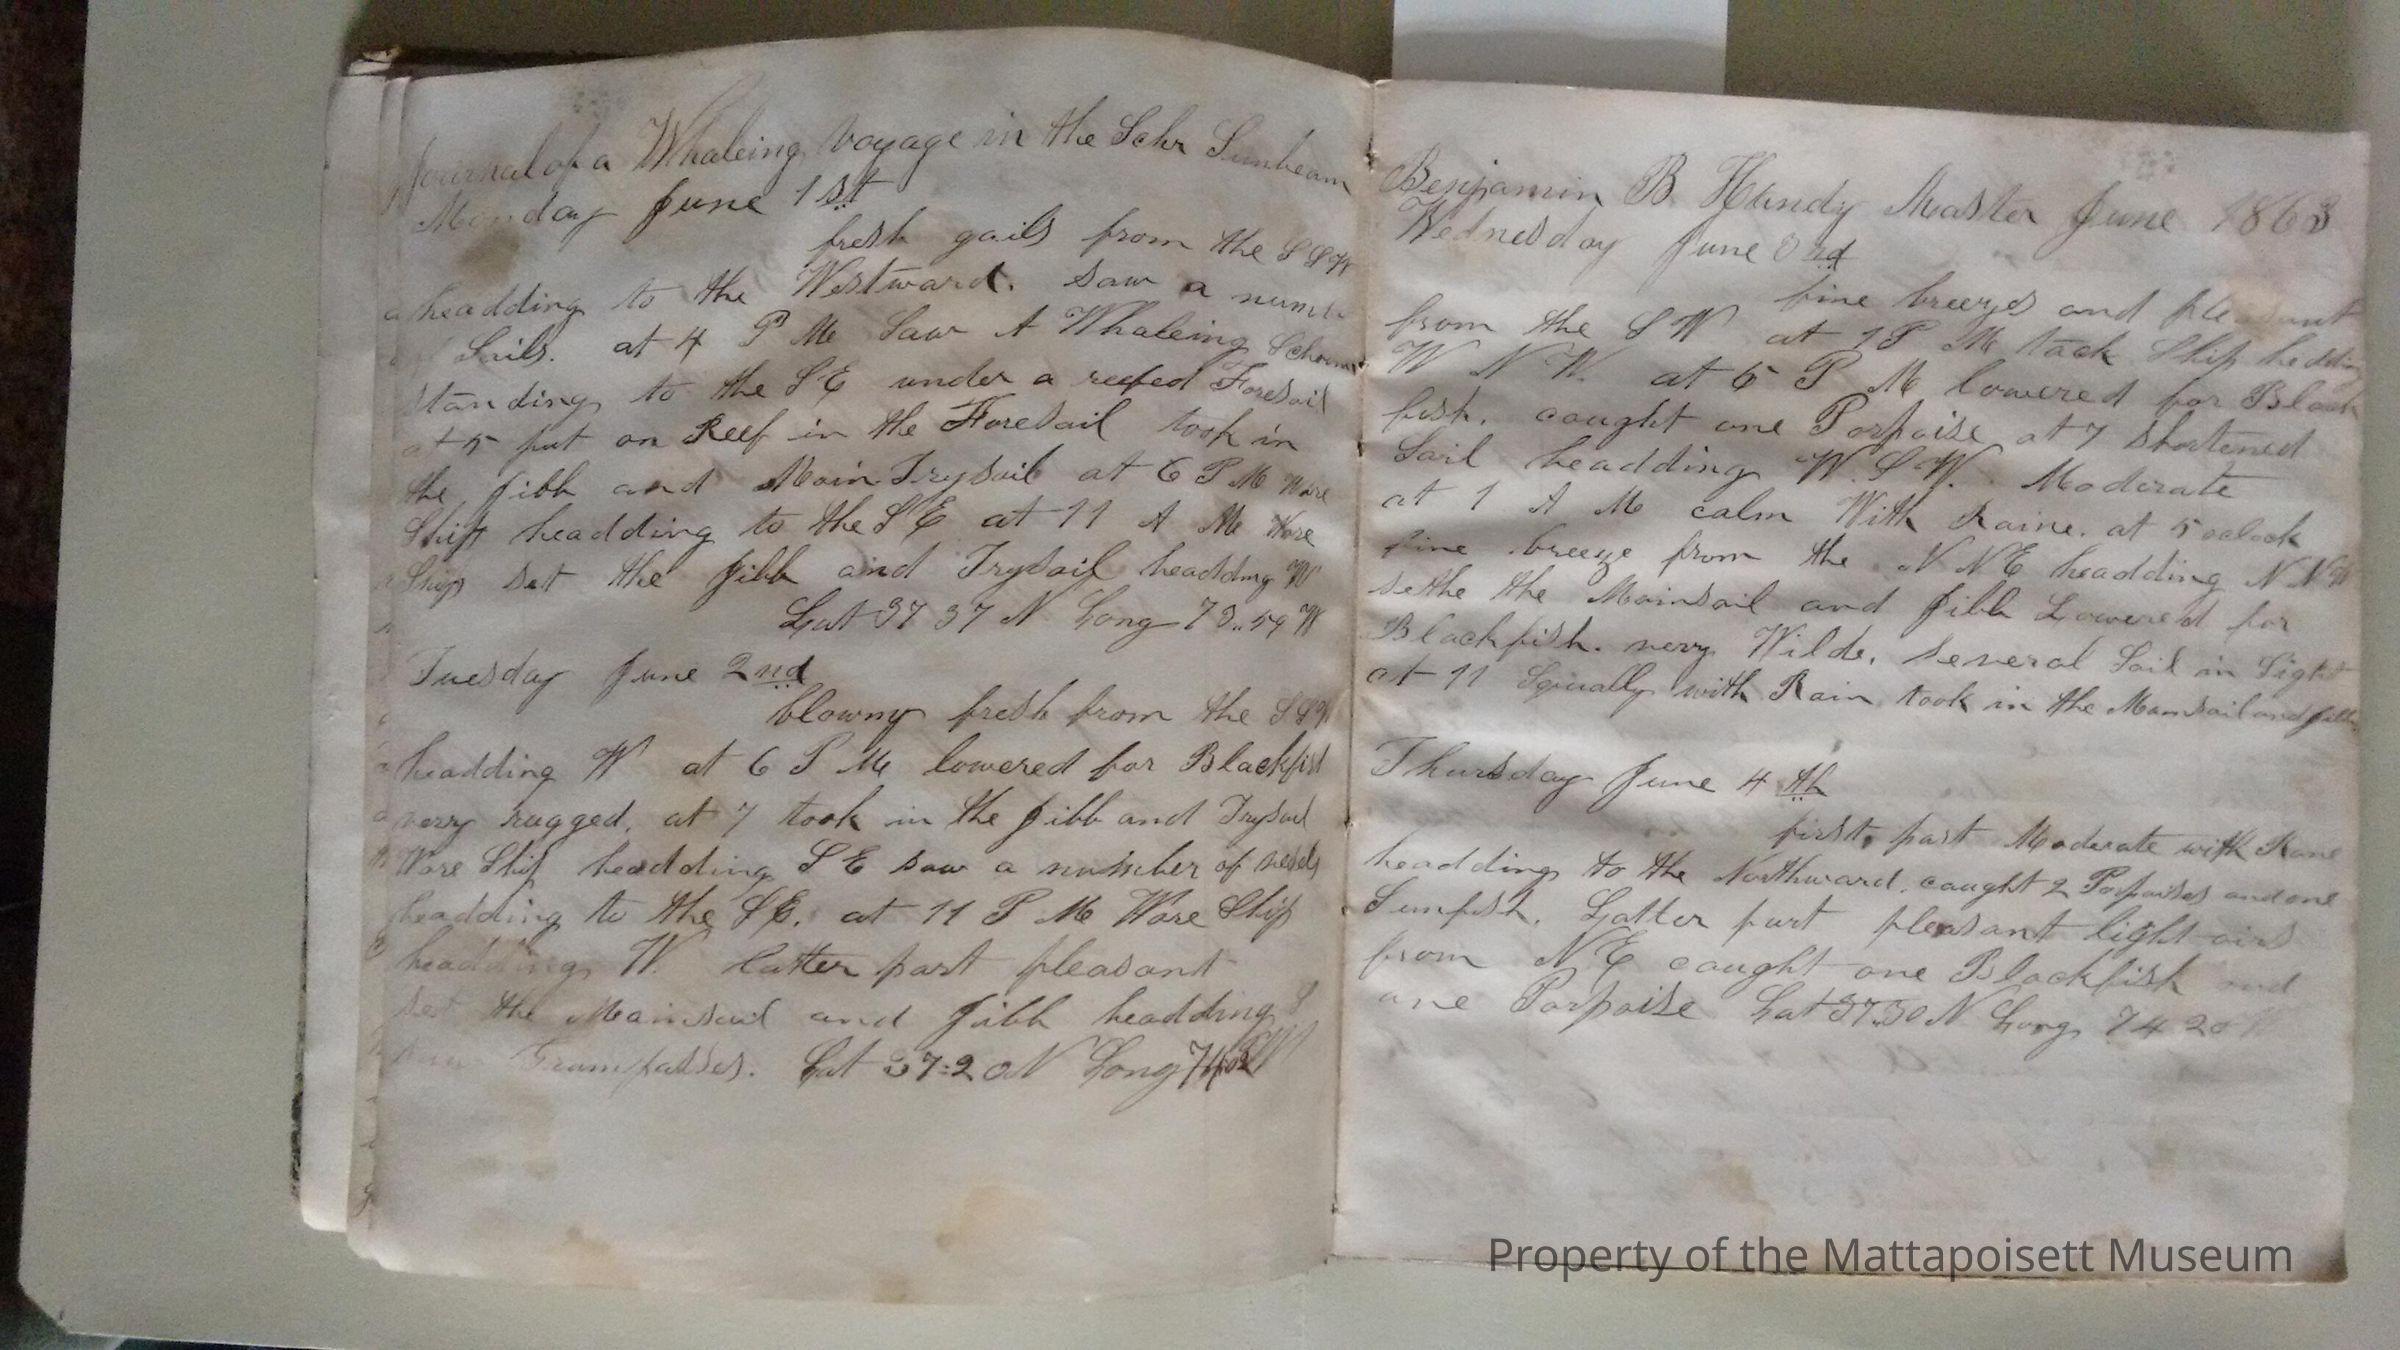 Journal of a Whaleing Voyage in the Schr Sunbeam
Monday June 1st
fresh gails from the S S W
headding to the Westward. Saw a numb
Sails. at 4 P M Saw A Whaleing Schoon
standing to the S E under a reefed Foresail
at 5 put on Reef in the Foresail took in
the Jibb and Main Trysail at 6 P M Wore
Ship headding to the S E at 11 A M Wore
Ship set the Jibb and Trysail headding W
Lat 37 37 N Long 73..59 W
Tuesday June 2nd
blowny fresh from the S S W
headding W at 6 P M lowered for Blackfish
very rugged. at 7 took in the Jibb and Trysail
Wore Ship headding S E saw a number of vesels
headding to the S E. at 11 P M Wore Ship
headding W. latter part pleasant
set the Mainsail and Jibb headding
Grampasses. Lat 37:20 N Long
Benjamin B Handy Master June 1863
Wednesday June 3rd
fine breezes and pleasant
from the S W at 1 P M tack Ship hedding
W N W. at 5 P M lowered for Black
fish. caught one Porpoise at 7 shortened
Sail headding W.S.W. Moderate
at 1 A M calm With Raine. at 5 oclock
fine breeze from the N N E headding N N W
sethe the Mainsail and Jibb Lowered for
Blackfish. very Wilde. several Sail in Sight
at 11 Squally with Rain took in the Mainsail and Jibb
Thursday June 4th
first, part Moderate with Rane
headding to the Northward. caught 2 Porpoises and one
Sunfish. Latter part pleasant light airs
from N E caught one Blackfish and
one Porpoise Lat 37.30 N Long 74 20
Property of the Mattapoisett Museum